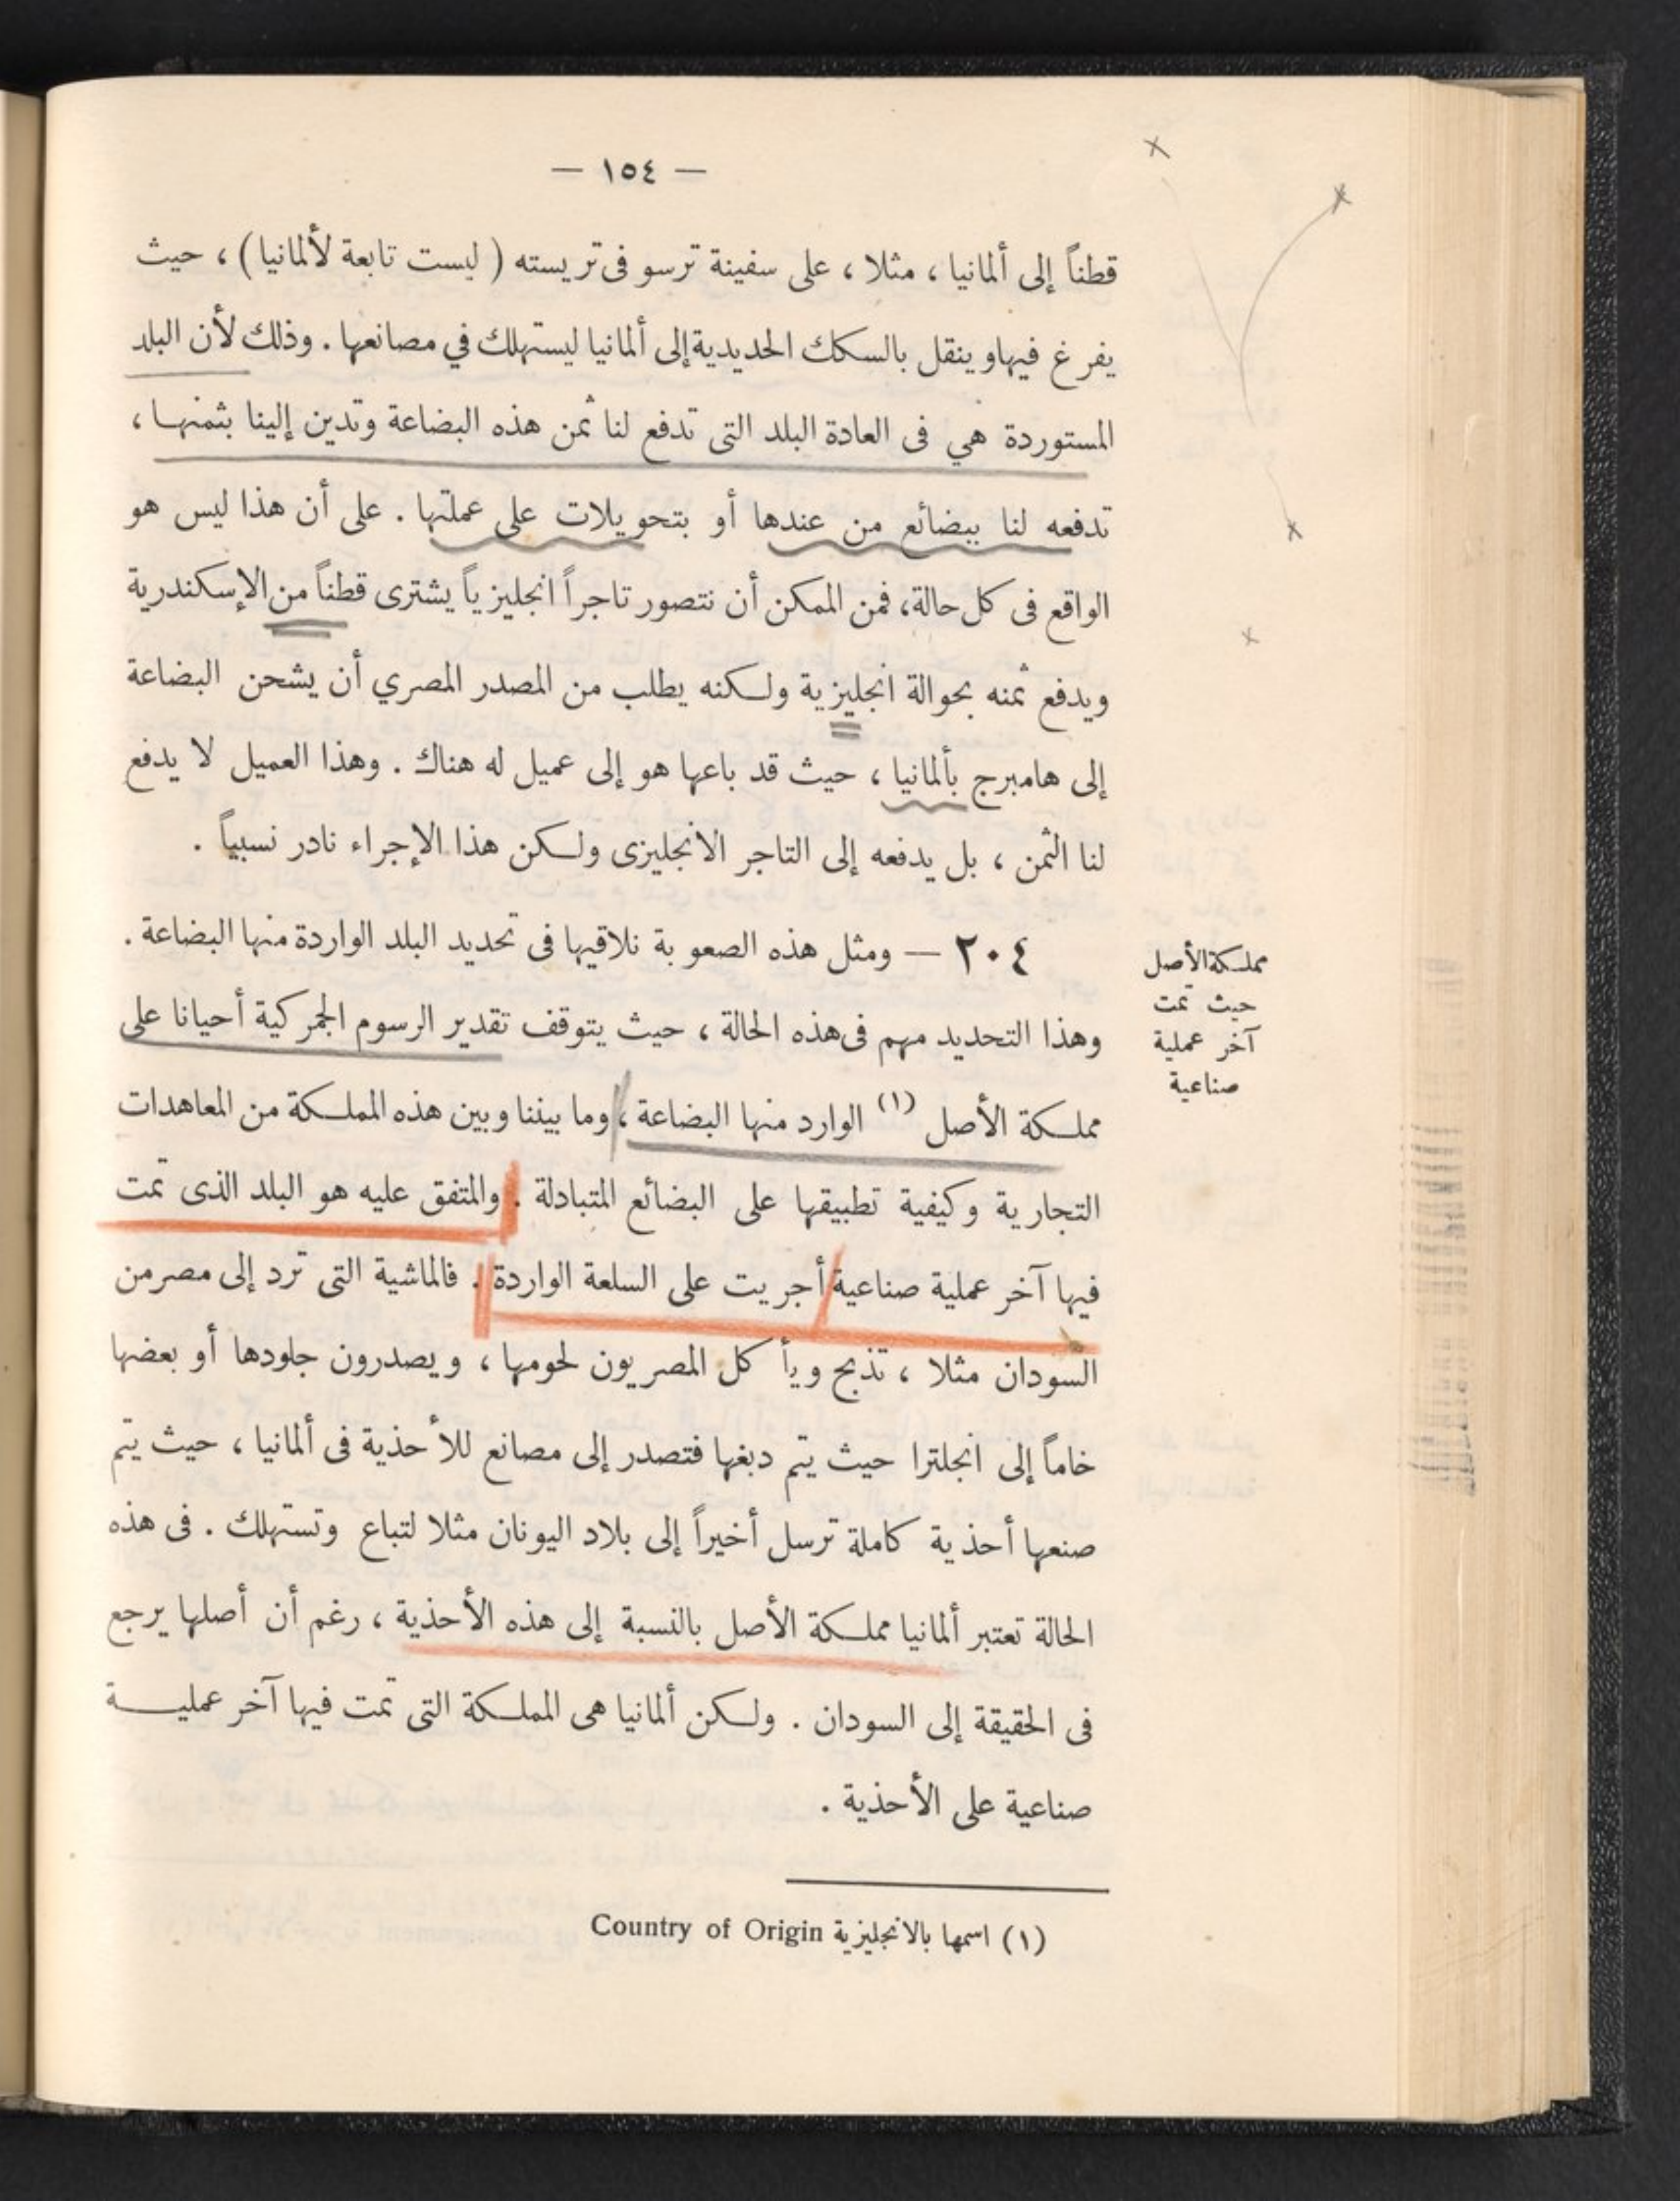 — ١٥٤ —
قطناً إلى ألمانيا ، مثلا ، على سفينة ترسو فى تريسته ( ليست تابعة لألمانيا ) ، حيث
يفرغ فيها وينقل بالسكك الحديدية إلى ألمانيا ليستهلك في مصانعها . وذلك لأن البلد
المستوردة هي فى العادة البلد التى تدفع لنا ثمن هذه البضاعة وتدين إلينا بثمنها ،
تدفعه لنا ببضائع من عندها أو بتحويلات على عملتها . على أن هذا ليس هو
الواقع فى كل حالة ، فمن الممكن أن نتصور تاجراً انجليزياً يشترى قطناً من الإسكندرية
ويدفع ثمنه بحوالة انجليزية ولكنه يطلب من المصدر المصري أن يشحن البضاعة
إلى هامبرج بألمانيا ، حيث قد باعها هو إلى عميل له هناك . وهذا العميل لا يدفع
لنا الثمن ، بل يدفعه إلى التاجر الانجليزى ولكن هذا الإجراء نادر نسبياً .
٢٠٤ — ومثل هذه الصعوبة نلاقيها فى تحديد البلد الواردة منها البضاعة .
وهذا التحديد مهم فى هذه الحالة ، حيث يتوقف تقدير الرسوم الجمركية أحيانا على
مملكة الأصل (١) الوارد منها البضاعة ، وما بيننا وبين هذه المملكة من المعاهدات
التجارية وكيفية تطبيقها على البضائع المتبادلة . والمتفق عليه هو البلد الذى تمت
فيها آخر عملية صناعية أجريت على السلعة الواردة . فالماشية التى ترد إلى مصر من
السودان مثلا ، تذبح ويأكل المصريون لحومها ، ويصدرون جلودها أو بعضها
خاماً إلى انجلترا حيث يتم دبغها فتصدر إلى مصانع للأحذية فى ألمانيا ، حيث يتم
صنعها أحذية كاملة ترسل أخيراً إلى بلاد اليونان مثلا لتباع وتستهلك . فى هذه
الحالة تعتبر ألمانيا مملكة الأصل بالنسبة إلى هذه الأحذية ، رغم أن أصلها يرجع
فى الحقيقة إلى السودان . ولكن ألمانيا هى المملكة التى تمت فيها آخر عملية
صناعية على الأحذية .
مملكة الأصل
حيث تمت
آخر عملية
صناعية
(١) اسمها بالانجليزية Country of Origin